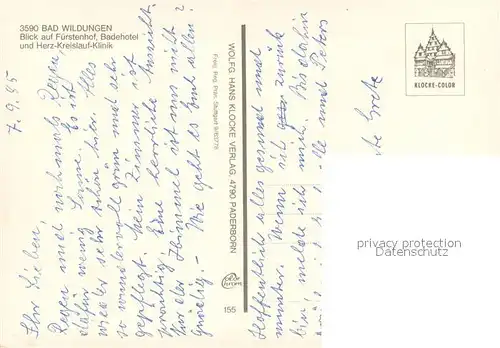 3590 BAD WILDUNGEN
Blick auf Fürstenhof, Badehotel
und Herz-Kreislauf-Klinik
7.9.85
Ihr Lieben,
Regen und nochmals Regen,
dafür wenig Sonne. Es ist
wieder sehr schön hier. Alles
so wundervoll grün und sehr
gepflegt. Mein Zimmer ist
prächtig. Eine herrliche Aussicht.
Nur der Himmel ist uns nicht
gnädig. – Wie geht es Euch allen?
Hoffentlich alles gesund und
munter. Wenn ich zurück
bin melde ich mich. Bis dahin
alle und Peters
Grete
WOLFG. HANS KLOCKE VERLAG, 4790 PADERBORN
Freig. Reg. Präs. Stuttgart
155
KLOCKE-COLOR
privacy protection
Datenschutz